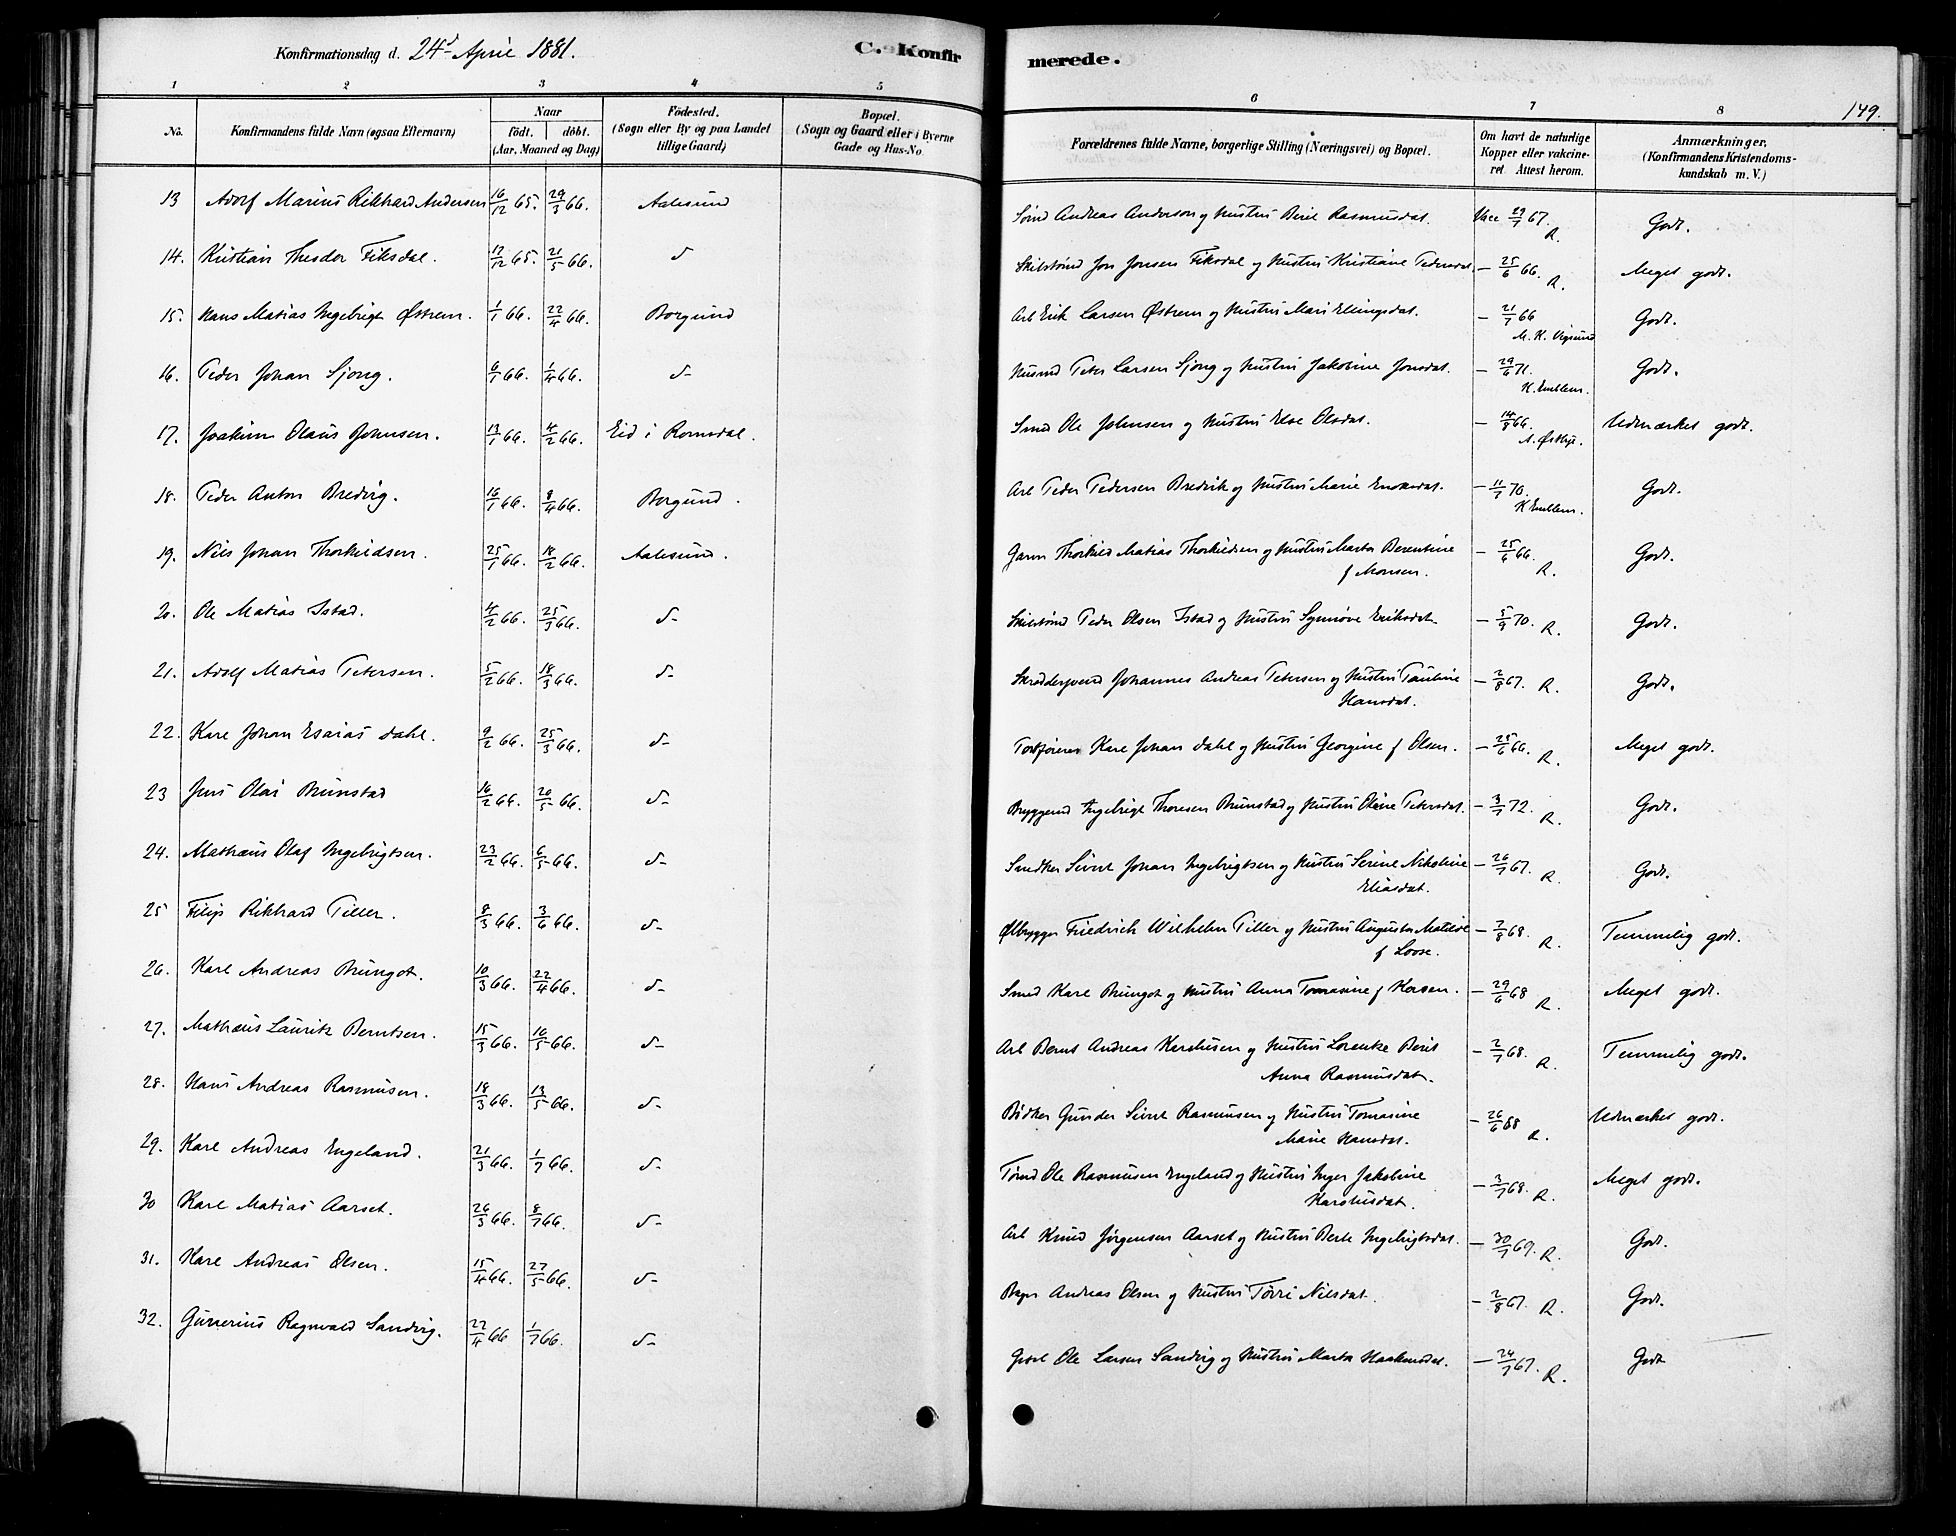 Konfirmationsdag d. 24d April 1881.
C. Konfir
merede.
149.
1 2 3 4 5 6 7 8
No.
Konfirmandens fulde Navn (ogsaa Efternavn)
Naar
födt. döbt.
(Aar, Maaned og Dag)
Födested.
(Sogn eller By og paa Landet
tillige Gaard)
Bopæl.
(Sogn og Gaard eller i Byerne
Gade og Hus-No.
Forældrenes fulde Navne, borgerlige Stilling (Næringsvei) og Bopæl.
Om havt de naturlige
Kopper eller vakcine-
ret. Attest herom.
Anmærkninger.
(Konfirmandens Kristendoms-
kundskab m. V.)
13 Adolf Marius Rikhard Andersen 16/12 65. 29/3 66. Aalesund Andreas Andersen og Hustru Berit Rasmusdat. Vacc 29/7 67. R. Godt.
14. Kristian Theodor Fiksdal. 17/12 65. 21/5 66. d Jon Jonsen Fiksdal og Hustru Kristiane Pedersdat. - 25/6 66. R. Meget godt.
15. Hans Matias Ingebrigt Østrem. 1/1 66. 22/4 66. Borgund Arb Erik Larsen Østrem og Hustru Mari Ellingsdat. - 21/7 66 Godt.
16. Peder Johan Sjong. 6/1 66. 1/4 66. d- Husmd Peter Larsen Sjong og Hustru Jakobine Jonsdat. - 29/6 71. K. Emblem. Godt.
17. Joakim Olaus Johnsen. 13/1 66. 4/2 66. Eid i Romsdal. Smed Ole Johnsen og Hustru Else Olsdat. - 14/8 66. Udmærket godt.
18. Peder Anton Bredvig. 16/1 66. 8/4 66. Borgund. Arb Peder Pedersen Bredvik og Hustru Marie Enoksdat. - 11/7 70. K Emblem. Godt.
19. Nils Johan Thorkildsen. 25/1 66. 18/2 66. Aalesund. Thorkild Matias Thorkildsen og Hustru Marta Berentine
f Monsen. - 25/6 66. R. Godt.
20. Ole Matias Istad. 4/2 66. 25/3 66. d- Peder Olsen Istad og Hustru Synnøve Eriksdat. - 5/9 70. R. Godt.
21. Adolf Matias Petersen. 5/2 66. 18/3 66. d- Skræddersvend Johannes Andreas Petersen og Hustru Pauline
Hansdat. - 2/8 67. R. Godt.
22. Karl Johan Esaias Dahl. 9/2 66. 25/3 66. d- Karl Johan Dahl og Hustru Georgine f Olsen. - 25/6 66. R. Meget godt.
23 Jens Olai Brunstad 16/2 66. 20/5 66. d- Ingebrigt Thoresen Brunstad og Hustru Oline Petersdat. - 3/7 72. R. Godt.
24. Mathæus Olaf Ingebrigtsen. 23/2 66. 6/5 66. d- Snedker Sivert Johan Ingebrigtsen og Hustru Serine Nikoline
Eliasdat. - 26/7 67. R. Godt.
25 Filip Rikhard Tiller. 8/3 66. 3/6 66. d- Ølbrygger Friedrich Wilhelm Tiller og Hustru Augusta Matilde
f Loose. - 2/8 68. R. Temmelig godt.
26. Karl Andreas Brungot. 10/3 66. 22/4 66. d- Smed Karl Brungot og Hustru Anna Tomasine f - 29/6 68 R. Meget godt.
27. Mathæus Lauritz Berntsen. 15/3 66. 16/5 66. d- Arb Bernt Andreas og Hustru Berit
Anna Rasmusdat. - 2/7 68. R. Temmelig godt.
28. Hans Andreas Rasmusen. 18/3 66. 13/5 66. d- Bødker Gunder Sivert Rasmusen og Hustru Tomasine
Marie Hansdat. - 26/6 68 R. Udmærket godt.
29. Karl Andreas Engeland. 21/3 66. 1/7 66. d- Ole Rasmusen Engeland og Hustru Inger Jakobine
- 3/7 68. R. Meget godt.
30 Karl Matias Aarset. 26/3 66. 8/7 66. d- Arb Knud Jørgensen Aarset og Hustru Berte Ingebrigtsdat. - 30/7 69. R. Godt.
31. Karl Andreas Olsen. 15/4 66. 27/5 66. d- Bager Andreas Olsen og Hustru Nilsdat. - 2/8 67. R. Godt.
32. Ragnvald Sandvig. 22/4 66 1/7 66. d- Ole Larsen Sandvig og Hustru Marta Haakensdat. - 24/7 67. R. Godt